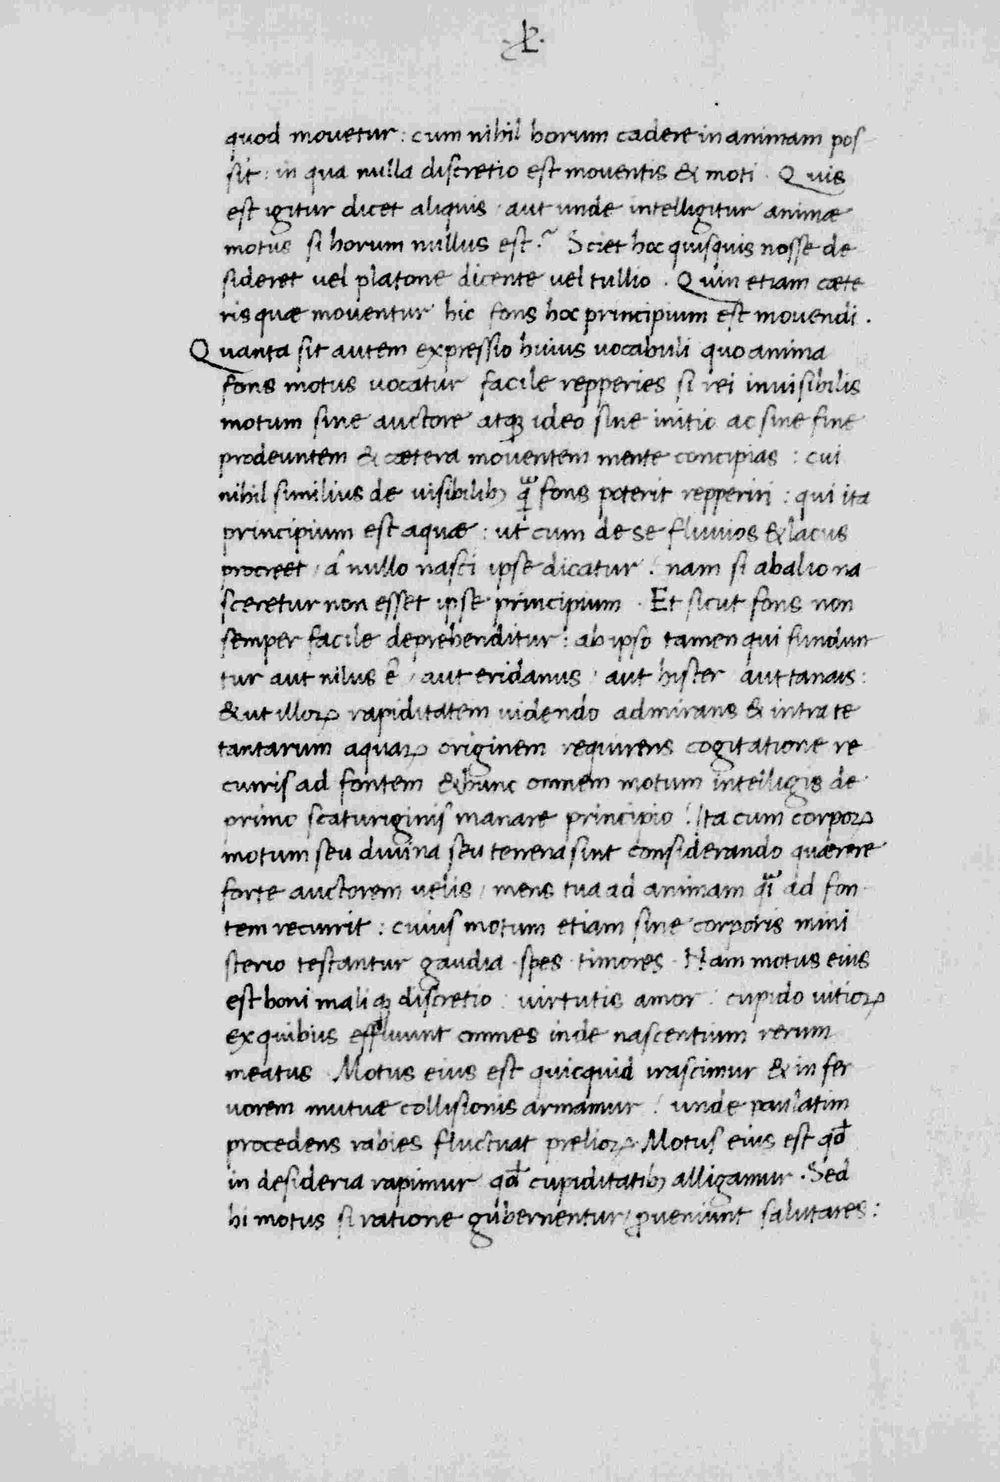 quod mouetur : cum nihil horum cadere in animam pos
sit : in qua nulla discretio est mouentis & moti . Quis
est igitur dicet aliquis / aut unde intelligitur animæ
motus si horum nullus est ? Sciet hoc quisquis nosse de
sideret vel platone dicente vel tullio . Quin etiam cæte
ris quæ mouentur hic fons hoc principium est mouendi .
Quanta sit autem expressio huius uocabuli quo anima
fons motus uocatur facile repperies si rei inuisibilis
motum sine auctore atqꝫ ideo sine initio ac sine fine
prodeuntem & cætera mouentem mente concipias : cui
nihil similius de uisibilibꝫ qᷓ fons poterit repperiri : qui ita
principium est aquæ : ut cum de se fluuios & lacus
procreet / á nullo nasci ipse dicatur : nam si ab alio na
sceretur non esset ipse principium . Et sicut fons non
semper facile deprehenditur : ab ipso tamen qui fundun
tur aut nilus ē / aut eridanus / aut hister aut tanais :
& ut illoꝝ rapiditatem uidendo admirans & intra te
tantarum aquaꝝ originem requirens cogitatione re
curris ad fontem & hunc omnem motum intelligis de
primo scaturiginis manare principio : Ita cum corpoꝝ
motum seu diuina seu terrena sint considerando quærere
forte auctorem uelis / mens tua ad animam qᷓi ad fon
tem recurrit : cuius motum etiam sine corporis mini
sterio testantur gaudia . spes . timores . Nam motus eius
est boni maliqꝫ discretio : uirtutis amor : cupido uitioꝝ
ex quibus effluunt omnes inde nascentium rerum
meatus . Motus eius est quicquid irascimur & in fer
uorem mutuæ collisionis armamur : unde paulatim
procedens rabies fluctuat prelioꝝ . Motus eius est qđ
in desideria rapimur qđ cupiditatibꝫ alligamur . Sed
hi motus si ratione gubernentur / ꝓueniunt salutares :